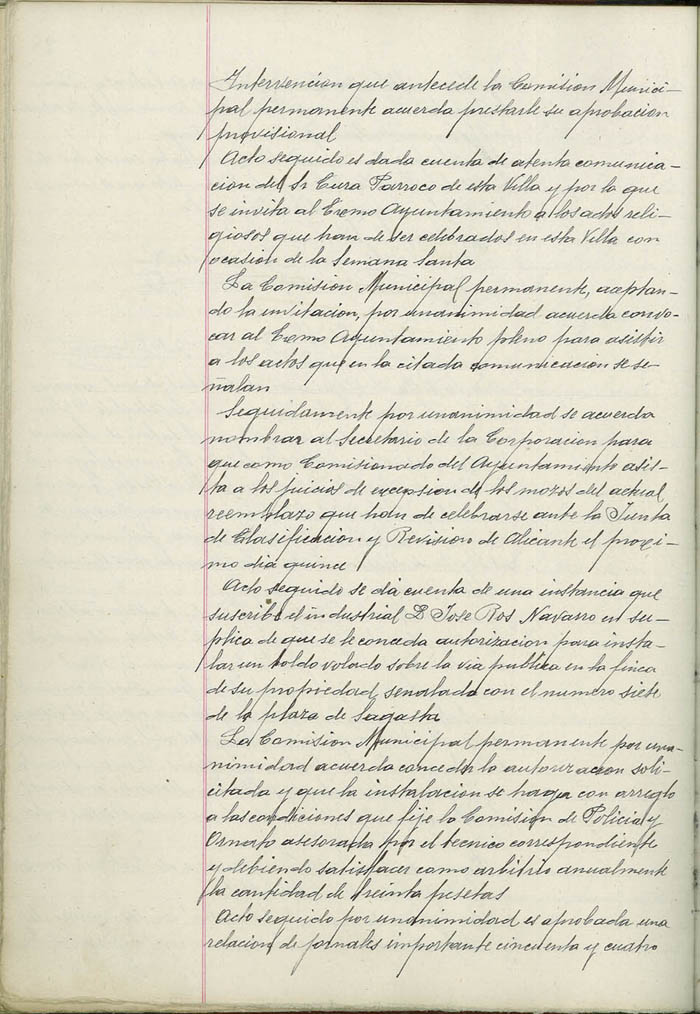 Intervencion que antecede la Comision Munici-
pal permanente acuerda prestarle su aprobacion
provisional
Acto seguido es dada cuenta de atenta comunica-
cion del Sr Cura Parroco de esta Villa y por la que
se invita al Exmo Ayuntamiento a los actos reli-
giosos que han de ser celebrados en esta Villa con
ocasion de la Semana Santa
La Comision Municipal permanente, aceptan-
do la invitacion, por unanimidad acuerda convo-
car al Exmo Ayuntamiento pleno para asistir
a los actos que en la citada comunicacion se se-
ñalan
Seguidamente por unanimidad se acuerda
nombrar al Secretario de la Corporacion para
que como Comisionado del Ayuntamiento asis-
ta a los juicios de excepsion de los mozos del actual
reemplazo que han de celebrarse ante la Junta
de Clasificacion y Revision de Alicante el proxi-
mo dia quince
Acto seguido se da cuenta de una instancia que
suscribe el industrial D Jose Ros Navarro en su-
plica de que se le conceda autorizacion para insta-
lar un toldo volado sobre la via publica en la finca
de su propiedad senalada con el numero siete
de la plaza de Sagasta
La Comision Municipal permanente por una-
nimidad acuerda conceder la autorizacion soli-
citada y que la instalacion se haga con arreglo
a las condiciones que fije la Comision de Policia y
Ornato asesorada por el tecnico correspondiente
y debiendo satisfacer como arbitrio anualmente
la cantidad de treinta pesetas
Acto seguido por unanimidad es aprobada una
relacion de jornales importante cincuenta y cuatro